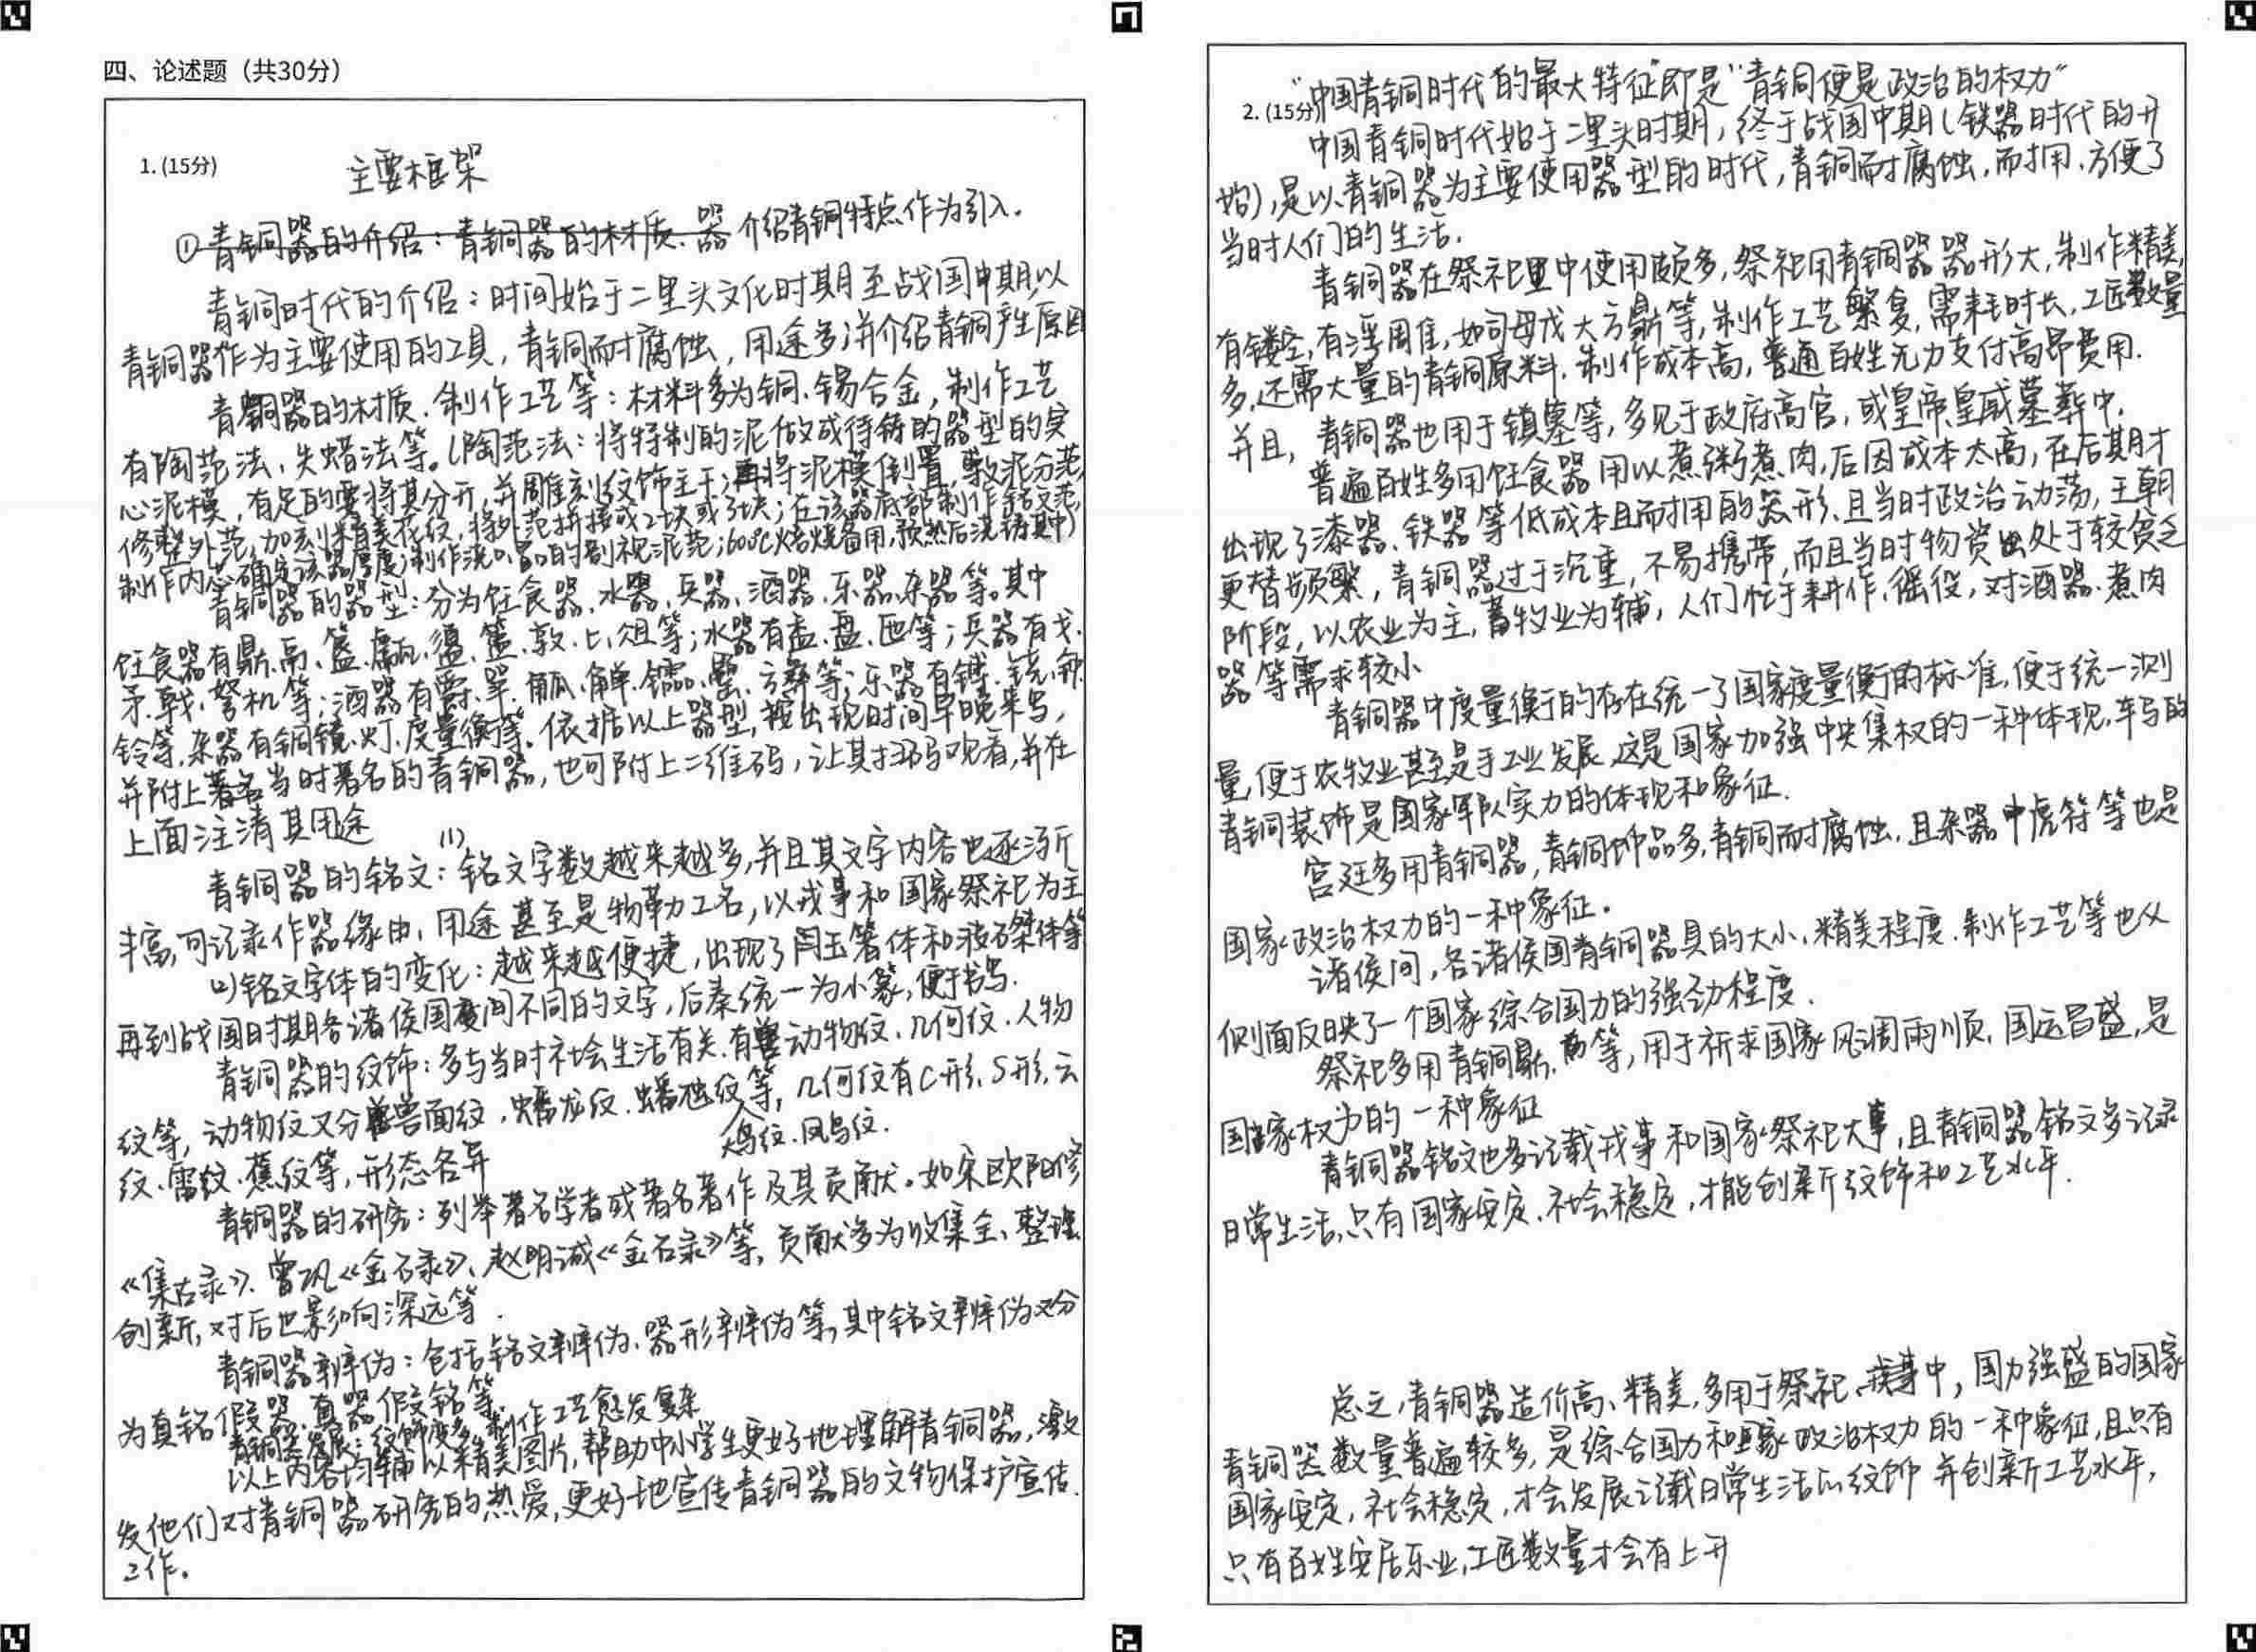 四、论述题（共30分）
1. (15分)
主要框架
① 青铜器的介绍：青铜器的材质、器 介绍青铜特点作为引入。
青铜时代的介绍：时间始于二里头文化时期至战国中期，以
青铜器作为主要使用的工具，青铜耐腐蚀，用途多；并介绍青铜产生原因
青铜器的材质、制作工艺等：材料多为铜、锡合金，制作工艺
有陶范法、失蜡法等。（陶范法：将特制的泥做成待铸的器型的实
心泥模，有足的要将其分开，并雕刻纹饰主干；再将泥模倒置，敷泥分范，
修整外范，加刻精美花纹，将外范拼接成2块或3块；在该器底部制作铭文范，
制作内芯确定该器厚度；制作浇口 的 泥范；600℃烧备用，预热后浇铸其中）
青铜器的器型：分为饪食器、水器、兵器、酒器、乐器、杂器等。其中
饪食器有鼎、鬲、簋、甗、盨、簠、敦、匕、俎等；水器有盂、盘、匜等；兵器有戈、
矛、戟、弩机等；酒器有爵、斝、觚、觯、罍、方彝等；乐器有镈、铙、
铃等，杂器有铜镜、灯、度量衡等。依据以上器型，按出现时间早晚来写，
并附上著名当时著名的青铜器，也可附上二维码，让其扫码观看，并在
上面注清其用途
青铜器的铭文：(1)铭文字数越来越多，并且其文字内容也逐渐
丰富，可记录作器缘由、用途甚至是物勒工名，以戎事和国家祭祀为主
(2)铭文字体的变化：越来越便捷，出现了闰玉箸体和波磔体等
再到战国时期各诸侯国间不同的文字，后秦统一为小篆，便于书写。
青铜器的纹饰：多与当时社会生活有关、有动物纹、几何纹、人物
纹等，动物纹又分兽面纹、蟠龙纹、蟠虺纹等，几何纹有C形、S形、云
鸟纹、凤鸟纹。
纹、雷纹、蕉纹等，形态各异
青铜器的研究：列举著名学者或著名著作及其贡献。如宋欧阳修
《集古录》、曾巩《金石录》、赵明诚《金石录》等，贡献多为收集全、整理
创新，对后世影响深远等。
青铜器辨伪：包括铭文辨伪、器形辨伪等，其中铭文辨伪又分
为真铭假器、真器假铭等。
青铜器发展：纹饰变多，制作工艺愈发复杂
以上内容均辅以精美图片，帮助中小学生更好地理解青铜器，激
发他们对青铜器研究的热爱，更好地宣传青铜器的文物保护宣传
工作。
2. (15分)
“中国青铜时代的最大特征”即是“青铜便是政治的权力”
中国青铜时代始于二里头时期，终于战国中期（铁器时代的开
始），是以青铜器为主要使用器型的时代，青铜耐腐蚀，耐用、方便了
当时人们的生活。
青铜器在祭祀里中使用颇多，祭祀用青铜器器形大，制作精美，
有镂空，有浮雕，如司母戊大方鼎等，制作工艺繁复，需耗时长，工匠数量
多，还需大量的青铜原料，制作成本高，普通百姓无力支付高昂费用。
并且，青铜器也用于镇墓等，多见于政府高官，或皇帝皇戚墓葬中。
普遍百姓多用饪食器用以煮粥煮肉，后因成本太高，在后期才
出现了漆器、铁器等低成本且耐用的器形、且当时政治动荡，王朝
更替频繁，青铜器过于沉重，不易携带，而且当时物资出处于较贫乏
阶段，以农业为主，畜牧业为辅，人们忙于耕作、徭役，对酒器、煮肉
器等需求较小
青铜器中度量衡的存在统一了国家度量衡的标准，便于统一测
量，便于农牧业甚至是手工业发展，这是国家加强中央集权的一种体现，车马的
青铜装饰是国家军队实力的体现和象征。
宫廷多用青铜器，青铜饰品多，青铜耐腐蚀，且杂器中虎符等也是
国家政治权力的一种象征。
诸侯间，各诸侯国青铜器具的大小、精美程度、制作工艺等也从
侧面反映了一个国家综合国力的强劲程度。
祭祀多用青铜鼎、鬲等，用于祈求国家风调雨顺，国运昌盛，是
国家权力的一种象征
青铜器铭文也多记载戎事和国家祭祀大事，且青铜器铭文多记录
日常生活，只有国家安定、社会稳定，才能创新纹饰和工艺水平。
总之，青铜器造价高、精美，多用于祭祀、戎事中，国力强盛的国家
青铜器数量普遍较多，是综合国力和国家政治权力的一种象征，且只有
国家安定，社会稳定，才会发展记载日常生活的纹饰并创新工艺水平，
只有百姓安居乐业，工匠数量才会有上升